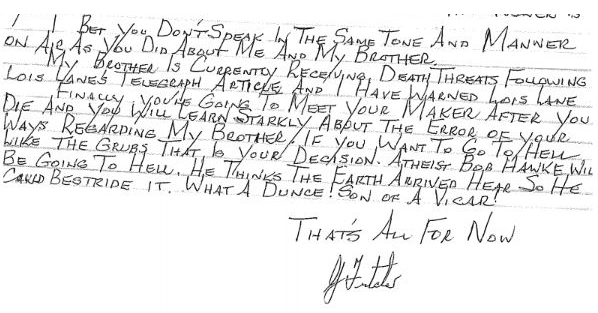 I Bet You Don't Speak In The Same Tone And Manner
on Air As You Did About Me And My Brother.
My Brother Is Currently Receiving Death Threats Following
Lois Lanes Telegraph Article And I Have Warned Lois Lane
Finally You're Going To Meet Your Maker After You
Die And You Will Learn Starkly About The Error of your
Ways Regarding My Brother. If You Want To Go To Hell
Like The Grubs That Is Your Decision. Atheist Bob Hawke Will
Be Going To Hell. He Thinks The Earth Arrived Hear So He
Could Bestride It. What A Dunce! Son of A Vicar!
That's All For Now